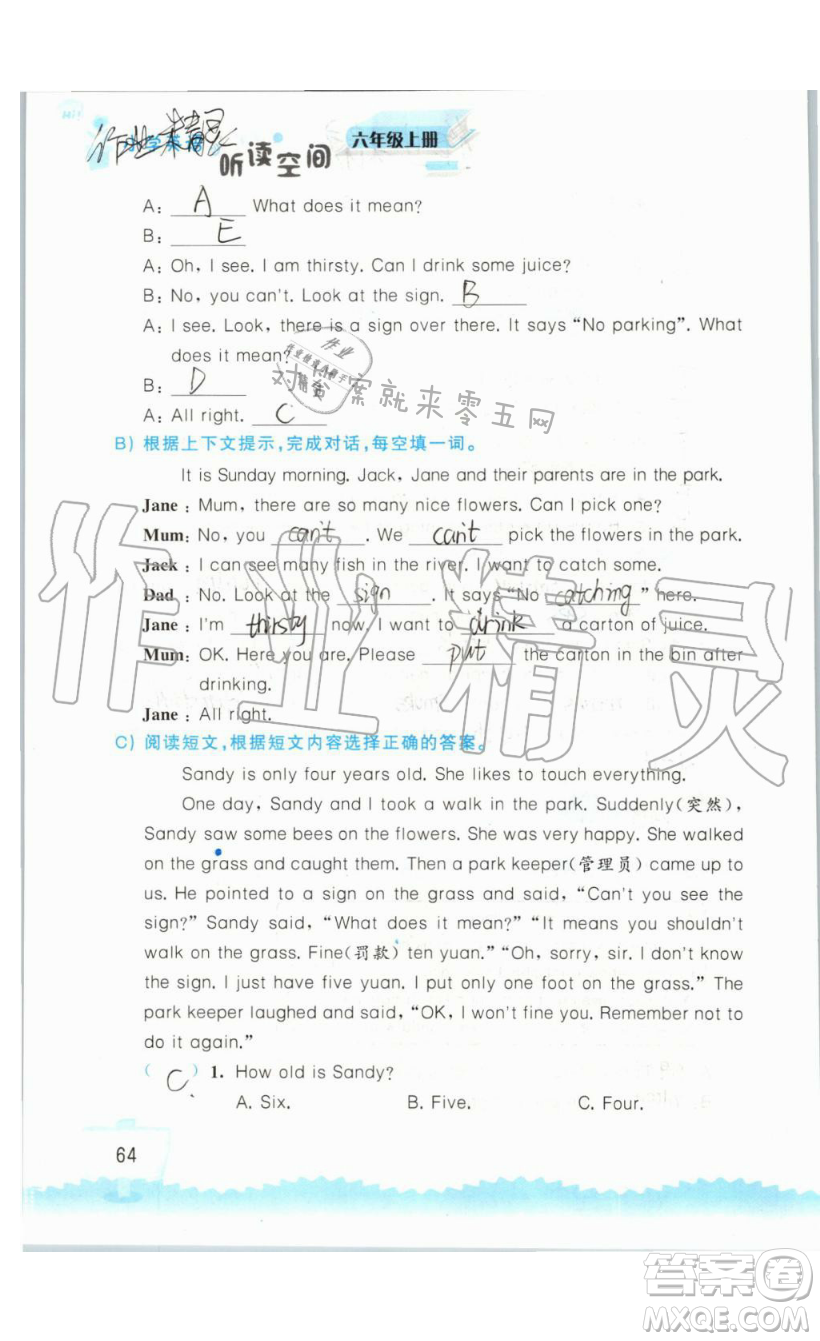 作业精灵
小学英语
听读空间
六年级上册
A: A What does it mean?
B: E
A: Oh, I see. I am thirsty. Can I drink some juice?
B: No, you can't. Look at the sign. B
A: I see. Look, there is a sign over there. It says “No parking”. What
does it mean?
B: D
A: All right. C
作业
对答案就来零五网
B) 根据上下文提示,完成对话,每空填一词。
It is Sunday morning. Jack, Jane and their parents are in the park.
Jane : Mum, there are so many nice flowers. Can I pick one?
Mum: No, you can't . We can't pick the flowers in the park.
Jack : I can see many fish in the river. I want to catch some.
Dad : No. Look at the sign . It says “No catching ” here.
Jane : I'm thirsty now. I want to drink a carton of juice.
Mum: OK. Here you are. Please put the carton in the bin after
drinking.
Jane : All right.
作业精灵
C) 阅读短文,根据短文内容选择正确的答案。
Sandy is only four years old. She likes to touch everything.
One day, Sandy and I took a walk in the park. Suddenly(突然),
Sandy saw some bees on the flowers. She was very happy. She walked
on the grass and caught them. Then a park keeper(管理员) came up to
us. He pointed to a sign on the grass and said, “Can't you see the
sign?” Sandy said, “What does it mean?” “It means you shouldn't
walk on the grass. Fine(罚款) ten yuan.” “Oh, sorry, sir. I don't know
the sign. I just have five yuan. I put only one foot on the grass.” The
park keeper laughed and said, “OK, I won't fine you. Remember not to
do it again.”
( C ) 1. How old is Sandy?
A. Six. B. Five. C. Four.
64
答案圈
MXQE.COM